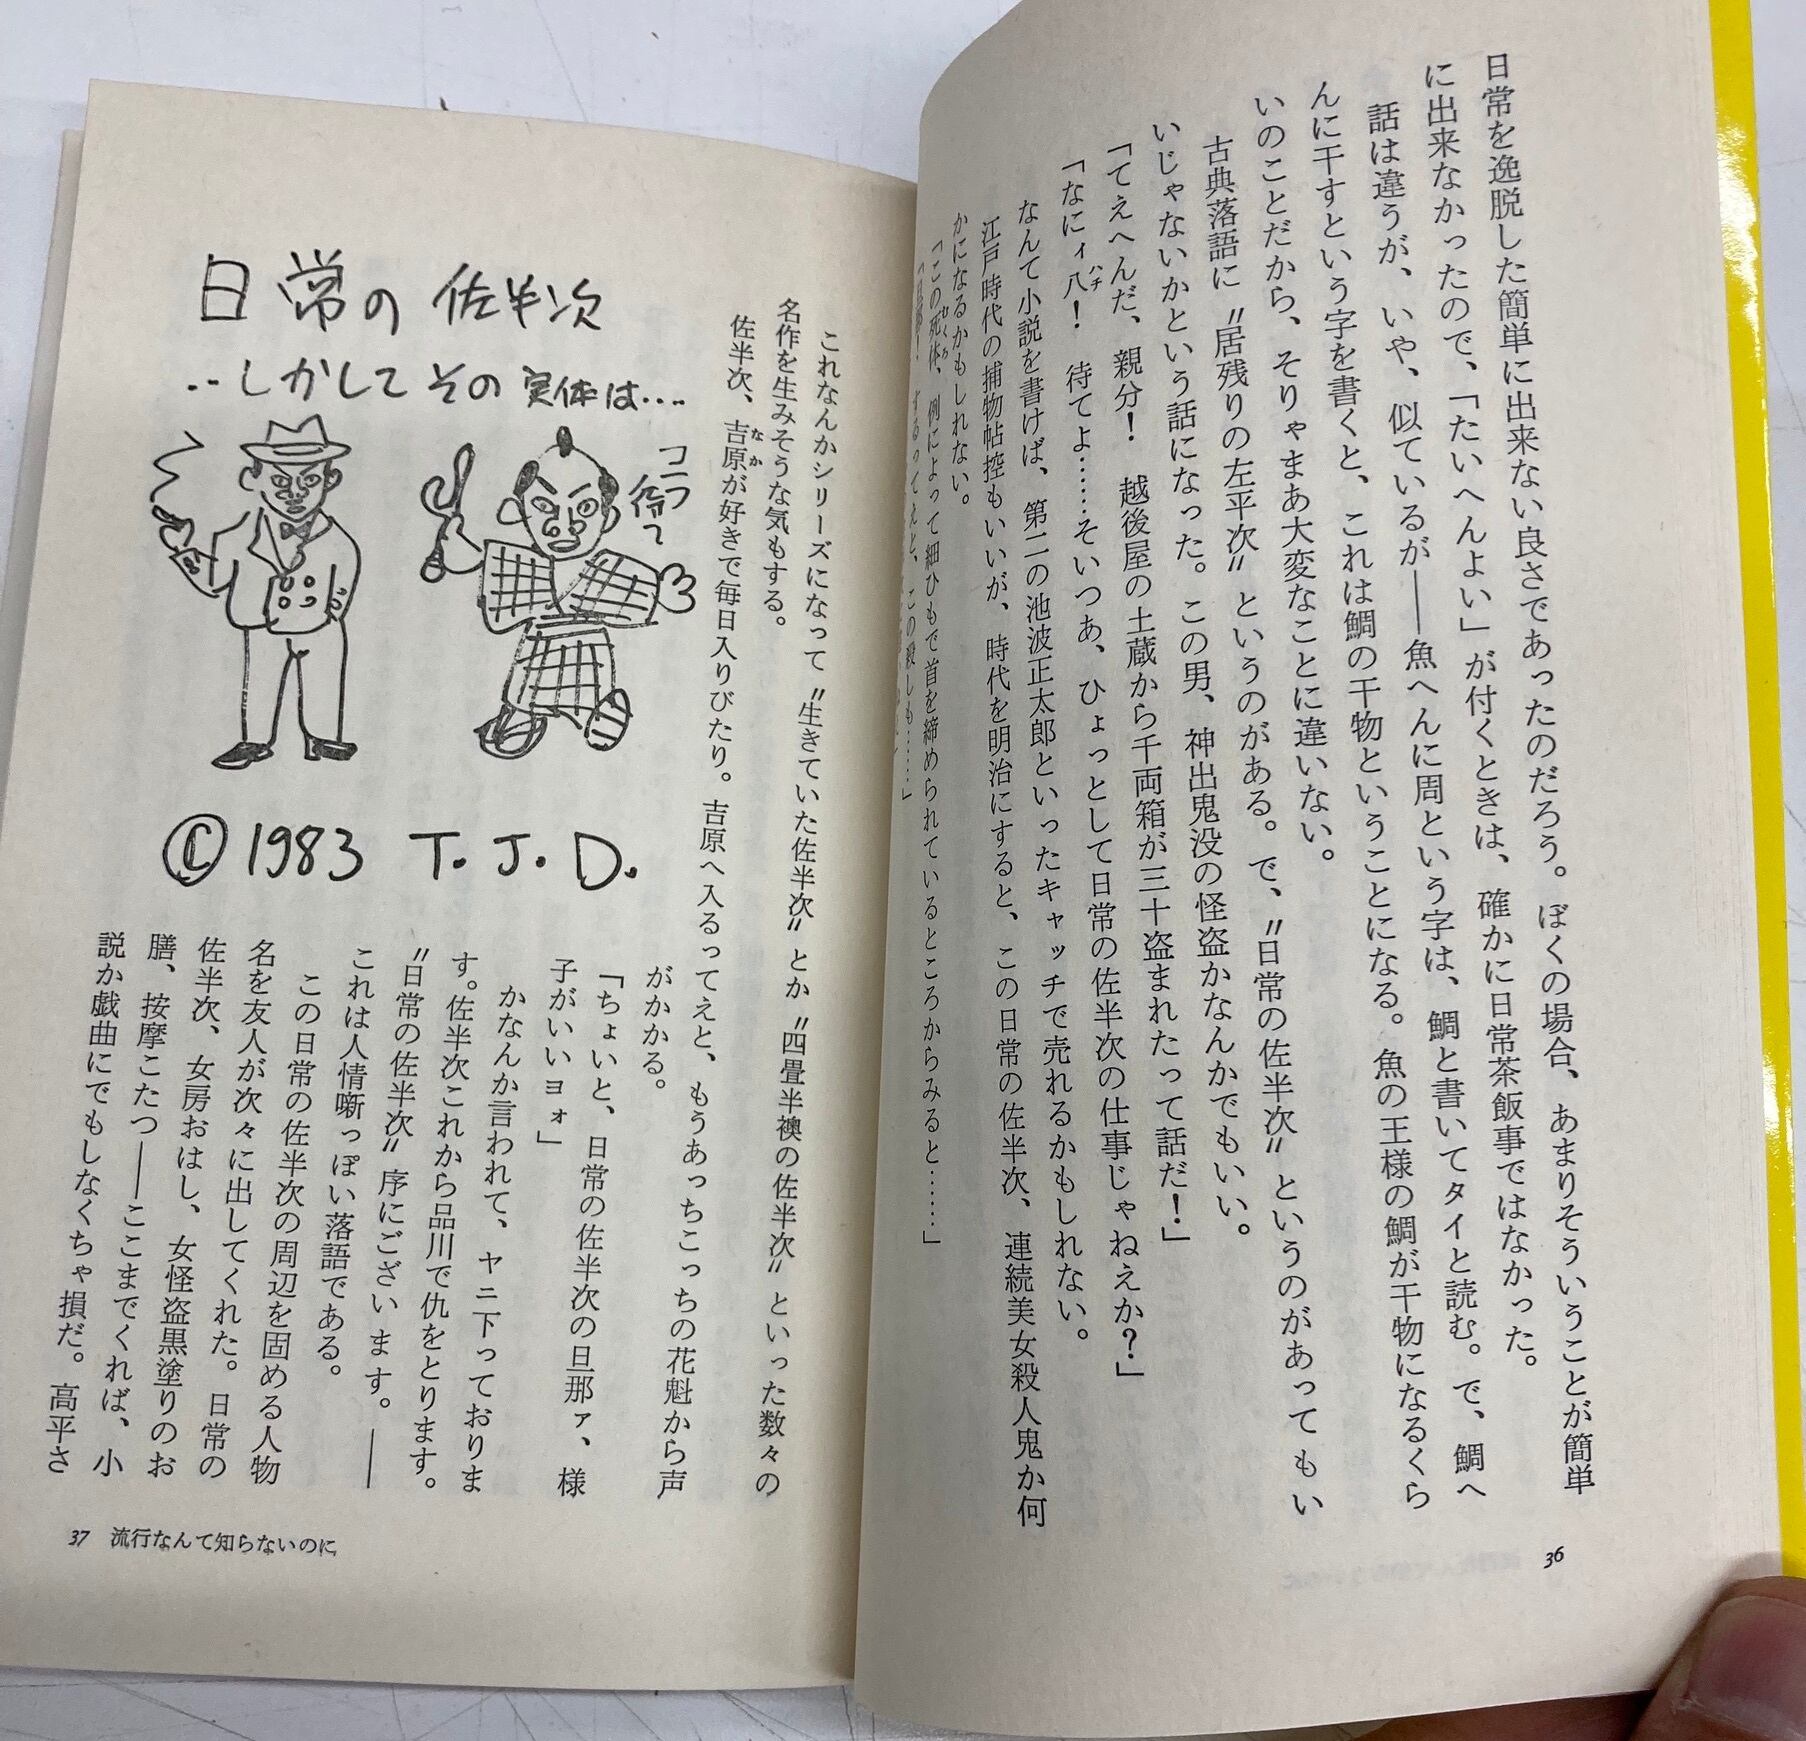 日常を逸脱した簡単に出来ない良さであったのだろう。ぼくの場合、あまりそういうことが簡単
に出来なかったので、「たいへんよい」が付くときは、確かに日常茶飯事ではなかった。
話は違うが、いや、似ているが――魚へんに周という字は、鯛と書いてタイと読む。で、鯛へ
んに干すという字を書くと、これは鯛の干物ということになる。魚の王様の鯛が干物になるくら
いのことだから、そりゃまあ大変なことに違いない。
古典落語に〝居残りの左平次〟というのがある。で、〝日常の佐半次〟というのがあってもい
いじゃないかという話になった。この男、神出鬼没の怪盗かなんかでもいい。
「てえへんだ、親分！　越後屋の土蔵から千両箱が三十盗まれたって話だ！」
「なにィ八！　待てよ……そいつあ、ひょっとして日常の佐半次の仕事じゃねえか？」
なんて小説を書けば、第二の池波正太郎といったキャッチで売れるかもしれない。
江戸時代の捕物帖控もいいが、時代を明治にすると、この日常の佐半次、連続美女殺人鬼か何
かになるかもしれない。
「この死体、例によって細ひもで首を締められているところからみると……」
するってえと、この殺しも……」
36
これなんかシリーズになって〝生きていた佐半次〟とか〝四畳半襖の佐半次〟といった数々の
名作を生みそうな気もする。
佐半次、吉原が好きで毎日入りびたり。吉原へ入るってえと、もうあっちこっちの花魁から声
がかかる。
「ちょいと、日常の佐半次の旦那ァ、様
子がいいヨォ」
かなんか言われて、ヤニ下っておりま
す。佐半次これから品川で仇をとります。
〝日常の佐半次〟序にございます。――
これは人情噺っぽい落語である。
この日常の佐半次の周辺を固める人物
名を友人が次々に出してくれた。日常の
佐半次、女房おはし、女怪盗黒塗りのお
膳、按摩こたつ――ここまでくれば、小
説か戯曲にでもしなくちゃ損だ。高平さ
日常の佐半次
‥しかしてその実体は‥‥
コラ待て
©1983 T.J.D.
37 流行なんて知らないのに